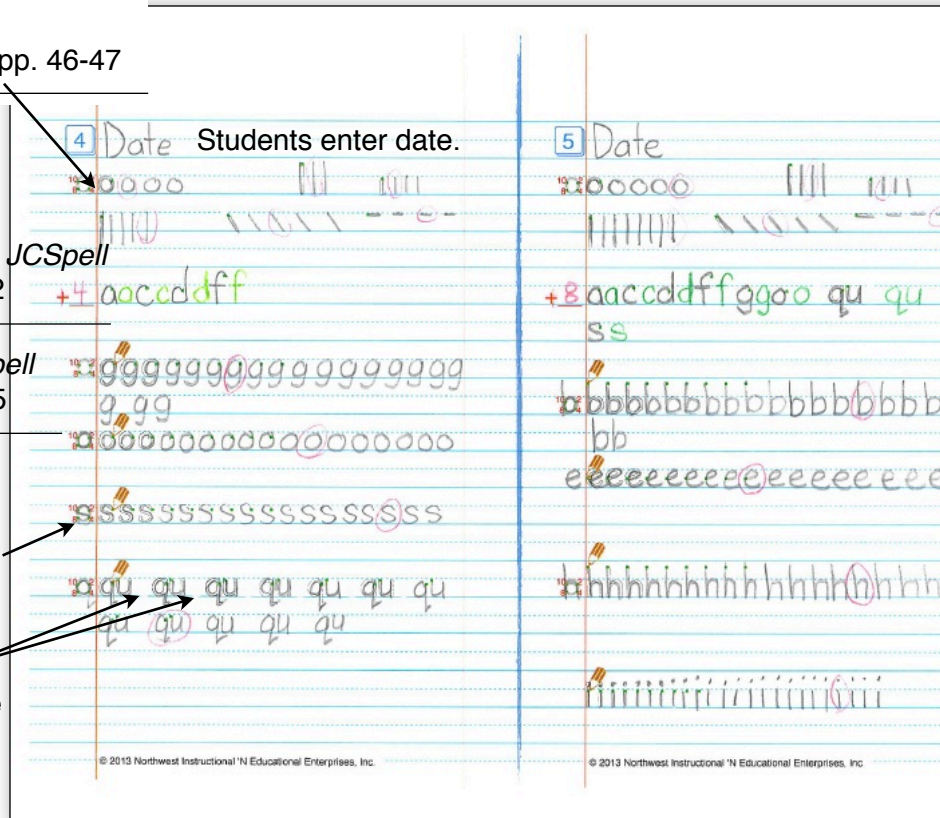 pp. 46-47
4 Date Students enter date.
oooo
JCSpell
+4 aaccddff
ggggggggggggggggg
ggg
ooooooooooooooooo
sssssssssssssssss
qu qu qu qu qu qu qu
qu qu qu qu qu
© 2013 Northwest Instructional 'N Educational Enterprises, Inc.
5 Date
ooooo
+8 aaccddffggoo qu qu
ss
bbbbbbbbbbbbbbbb
bb
eeeeeeeeeeeeeeee
hhhhhhhhhhhhhhhh
iiiiiiiiiiiiiiii
© 2013 Northwest Instructional 'N Educational Enterprises, Inc